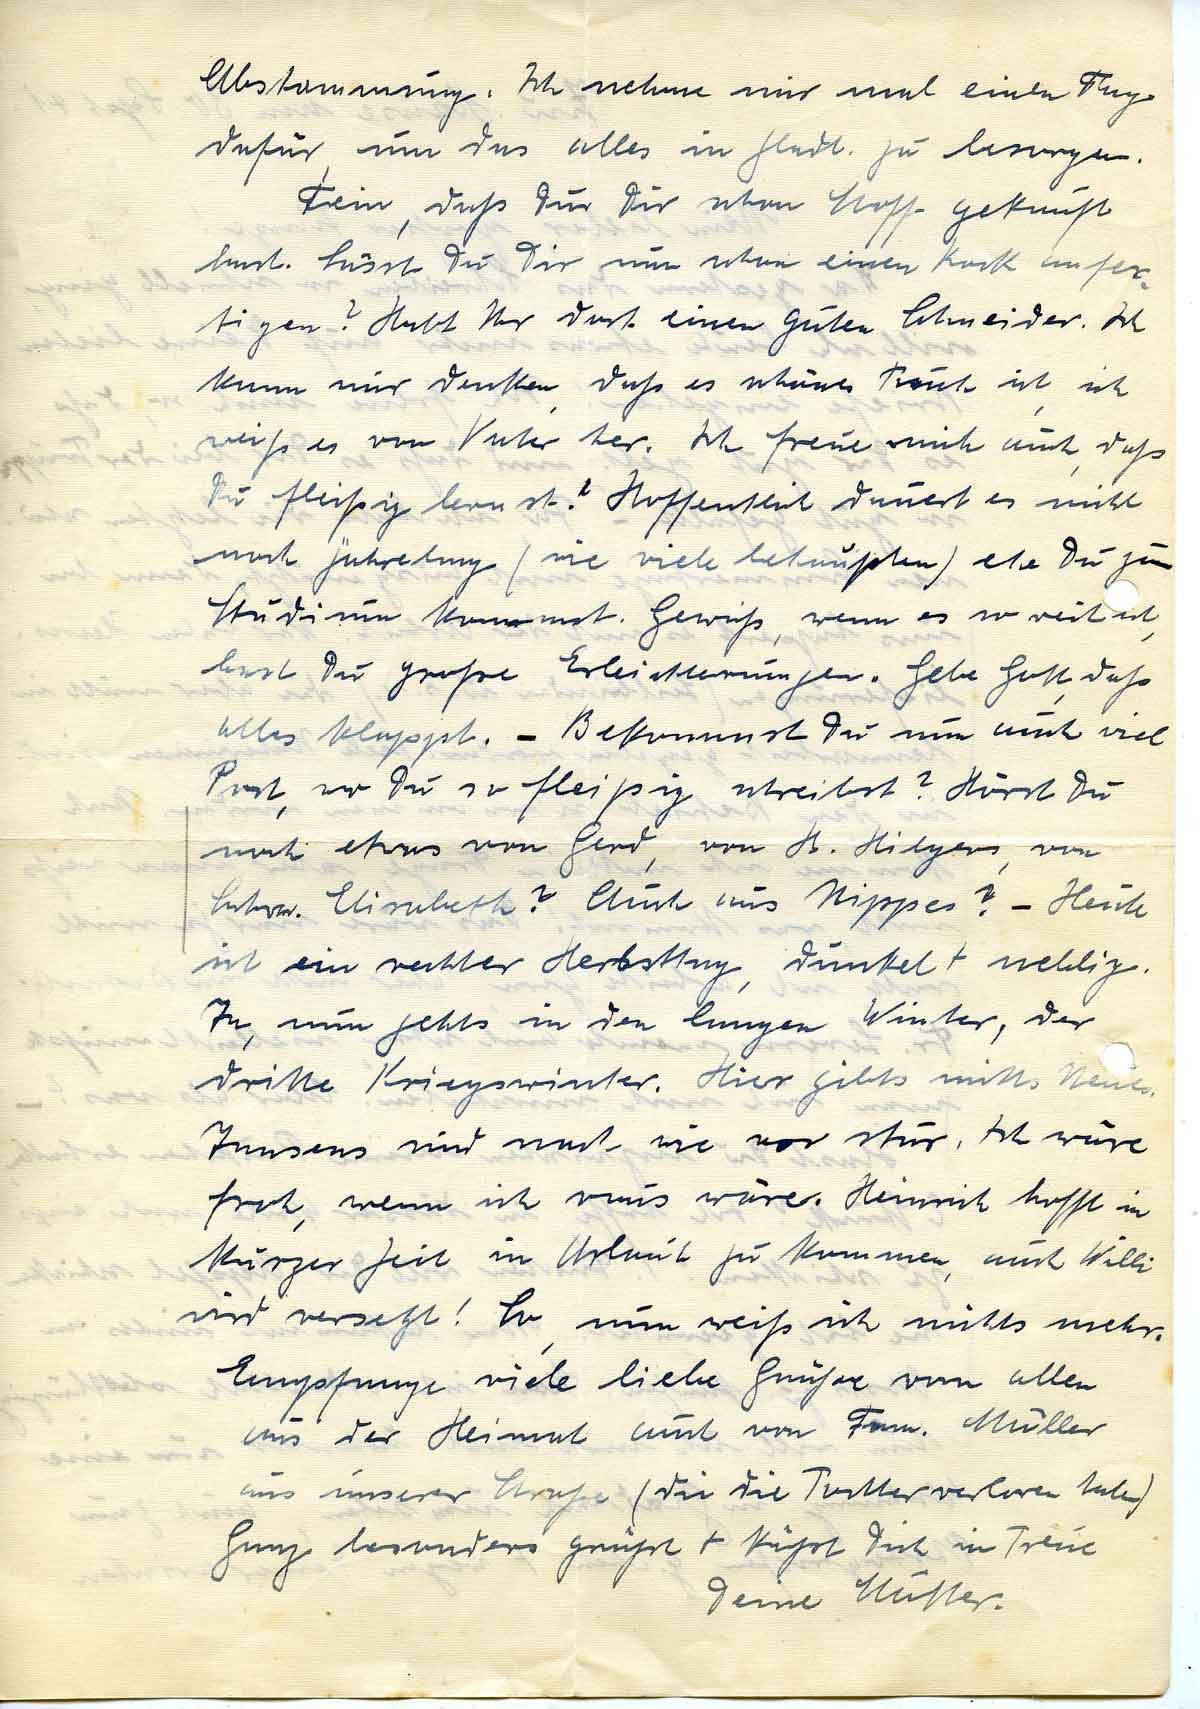 Abstammung. Ich nehme mir mal einen Tag
dafür, um das alles in Gladb. zu besorgen.
Fein, daß Du Dir schon Stoff gekauft
hast. Lässt Du Dir nun schon einen Rock anfer-
tigen? Habt Ihr dort einen guten Schneider. Ich
kann mir denken, daß es schönes Tuch ist, ich
weiß es von Vater her. Ich freue mich auch, daß
Du fleißig lernst.! Hoffentlich dauert es nicht
noch jahrelang (wie viele behaupten) ehe Du zum
Studium kommst. Gewiß, wenn es so weit ist,
hast Du große Erleichterungen. Gebe Gott, daß
alles klappt. – Bekommst Du nun auch viel
Post, wo Du so fleißig schreibst? Hörst Du
noch etwas von Gerd, von H. Hilgers, von
Schw. Elisabeth? Auch aus Nippes? – Heute
ist ein rechter Herbsttag, dunkel + neblig.
Ja, nun gehts in den langen Winter, der
dritte Kriegswinter. Hier gibts nichts Neues.
Jansens sind nach wie vor stur. Ich wäre
froh, wenn ich raus wäre. Heinrich hofft in
kurzer Zeit in Urlaub zu kommen, auch Willi
wird versetzt! So, nun weiß ich nichts mehr.
Empfange viele liebe Grüße von allen
aus der Heimat auch von Fam. Müller
aus unserer Straße (die die Tochter verloren haben)
Ganz besonders grüßt + küßt Dich in Treue
Deine Mutter.